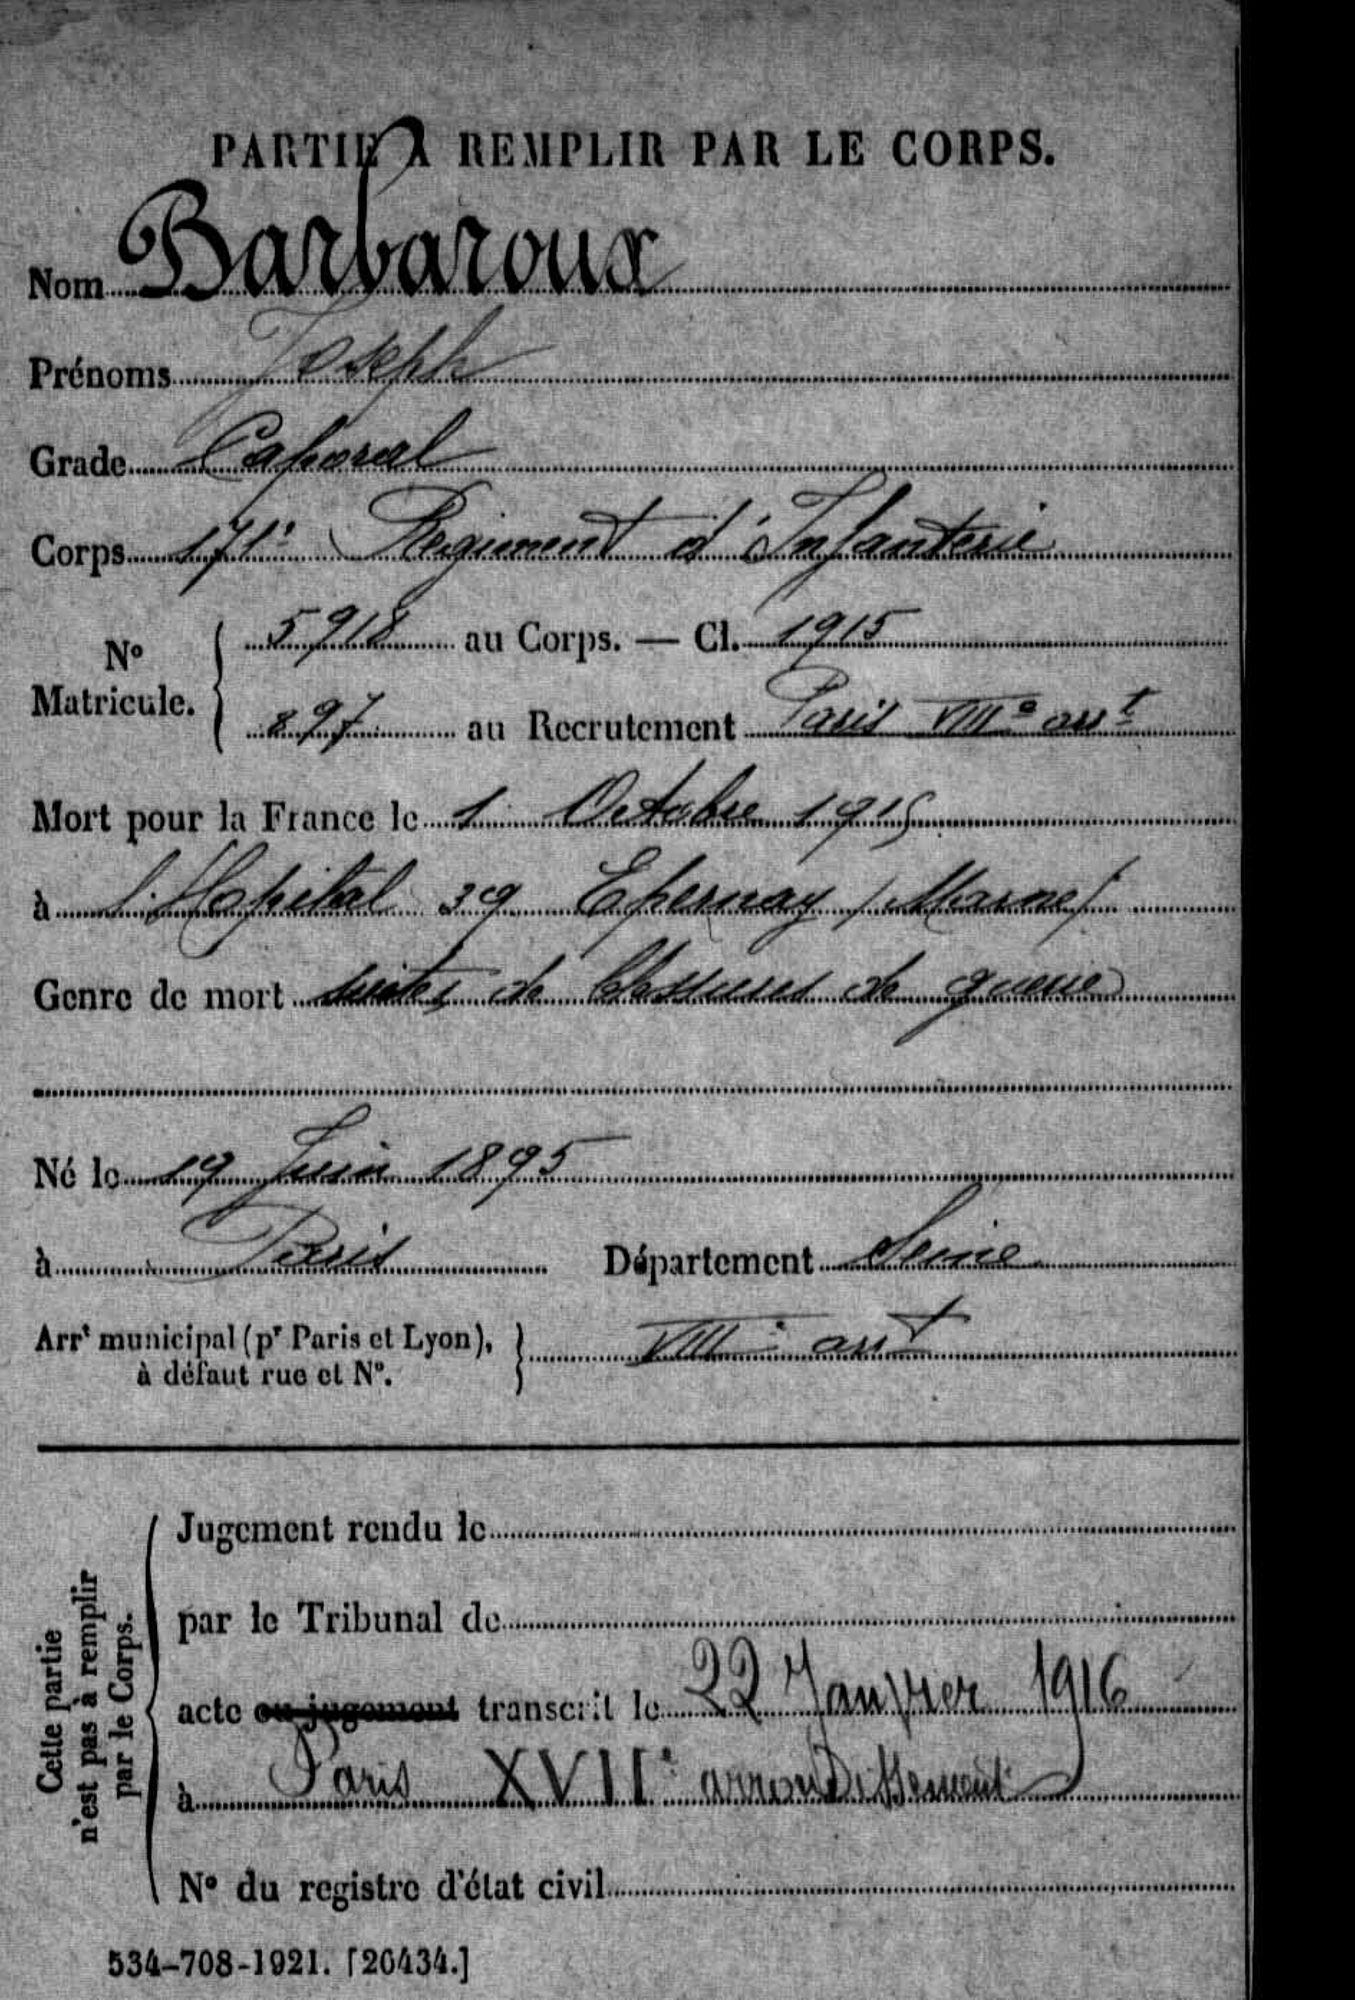 PARTIE À REMPLIR PAR LE CORPS.
Nom Barbaroux
Prénoms Joseph
Grade Caporal
Corps 171e Régiment d'Infanterie
N° Matricule. { 5918 au Corps. — Cl. 1915
897 au Recrutement Paris VIIIe arrt
Mort pour la France le 1 Octobre 1915
à l'Hopital 39 Epernay (Marne)
Genre de mort suites de blessures de guerre
Né le 19 Juin 1895
à Paris Département Seine
Arrt municipal (pr Paris et Lyon), à défaut rue et N°. } VIIIe arrt
Cette partie n'est pas à remplir par le Corps.
Jugement rendu le
par le Tribunal de
acte ou jugement transcrit le 22 Janvier 1916
à Paris XVIIe arrondissement
N° du registre d'état civil
534-708-1921. [26434.]